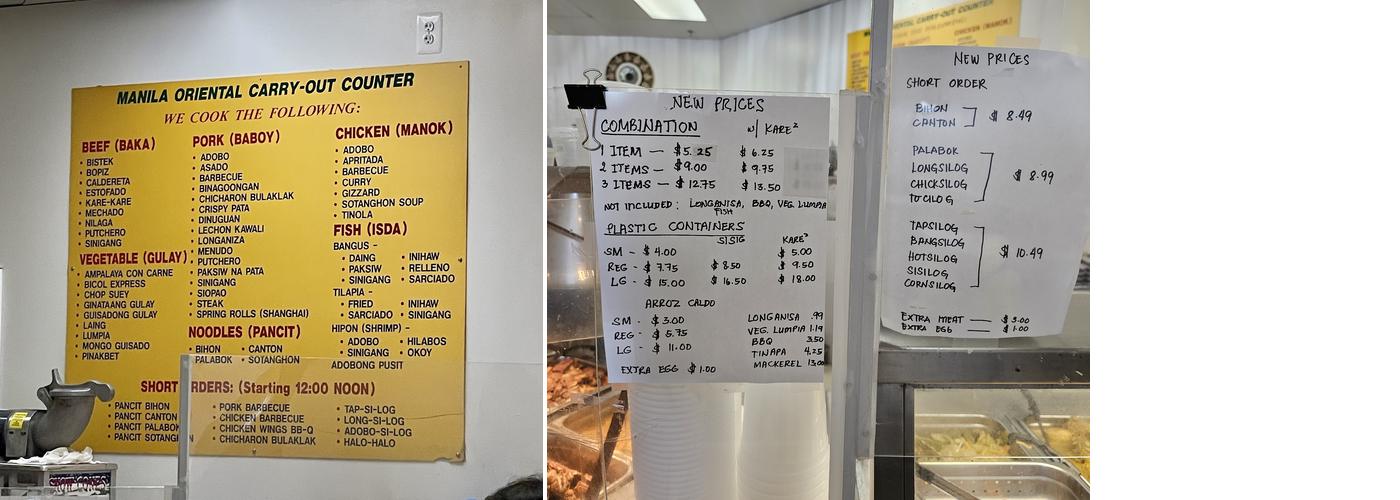 MANILA ORIENTAL CARRY-OUT COUNTER
WE COOK THE FOLLOWING:
BEEF (BAKA)
• BISTEK
• BOPIZ
• CALDERETA
• ESTOFADO
• KARE-KARE
• MECHADO
• NILAGA
• PUTCHERO
• SINIGANG
VEGETABLE (GULAY)
• AMPALAYA CON CARNE
• BICOL EXPRESS
• CHOP SUEY
• GINATAANG GULAY
• GUISADONG GULAY
• LAING
• LUMPIA
• MONGO GUISADO
• PINAKBET
PORK (BABOY)
• ADOBO
• ASADO
• BARBECUE
• BINAGOONGAN
• CHICHARON BULAKLAK
• CRISPY PATA
• DINUGUAN
• LECHON KAWALI
• LONGANIZA
• MENUDO
• PUTCHERO
• PAKSIW NA PATA
• SINIGANG
• SIOPAO
• STEAK
• SPRING ROLLS (SHANGHAI)
NOODLES (PANCIT)
• BIHON • CANTON
• PALABOK • SOTANGHON
CHICKEN (MANOK)
• ADOBO
• APRITADA
• BARBECUE
• CURRY
• GIZZARD
• SOTANGHON SOUP
• TINOLA
FISH (ISDA)
BANGUS -
• DAING • INIHAW
• PAKSIW • RELLENO
• SINIGANG • SARCIADO
TILAPIA -
• FRIED • INIHAW
• SARCIADO • SINIGANG
HIPON (SHRIMP) -
• ADOBO • HILABOS
• SINIGANG • OKOY
ADOBONG PUSIT
SHORT ORDERS: (Starting 12:00 NOON)
• PANCIT BIHON
• PANCIT CANTON
• PANCIT PALABOK
• PANCIT SOTANGHON
• PORK BARBECUE
• CHICKEN BARBECUE
• CHICKEN WINGS BB-Q
• CHICHARON BULAKLAK
• TAP-SI-LOG
• LONG-SI-LOG
• ADOBO-SI-LOG
• HALO-HALO
SNOW CONES
NEW PRICES
COMBINATION w/ KARE²
1 ITEM — $5.25 $6.25
2 ITEMS — $9.00 $9.75
3 ITEMS — $12.75 $13.50
NOT INCLUDED: LONGANISA, BBQ, VEG. LUMPIA
FISH
PLASTIC CONTAINERS
SISIG KARE²
SM - $4.00 $5.00
REG - $7.75 $8.50 $9.50
LG - $15.00 $16.50 $18.00
ARROZ CALDO
SM - $3.00
REG - $5.75
LG - $11.00
EXTRA EGG $1.00
LONGANISA .99
VEG. LUMPIA 1.19
BBQ 3.50
TINAPA 4.25
MACKEREL 13.00
ORIENTAL CARRY-OUT COUNTER
CHICKEN (MANOK)
NEW PRICES
SHORT ORDER
BIHON
CANTON
$8.49
PALABOK
LONGSILOG
CHICKSILOG
TOCILOG
$8.99
TAPSILOG
BANGSILOG
HOTSILOG
SISILOG
CORNSILOG
$10.49
EXTRA MEAT — $3.00
EXTRA EGG — $1.00